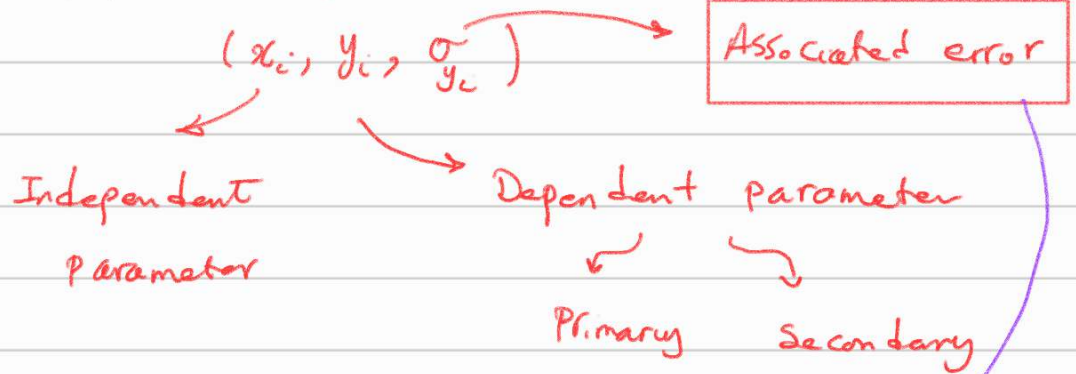 (xᵢ, yᵢ, σ_yᵢ)
Associated error
Independent
Parameter
Dependent parameter
Primary
Secondary